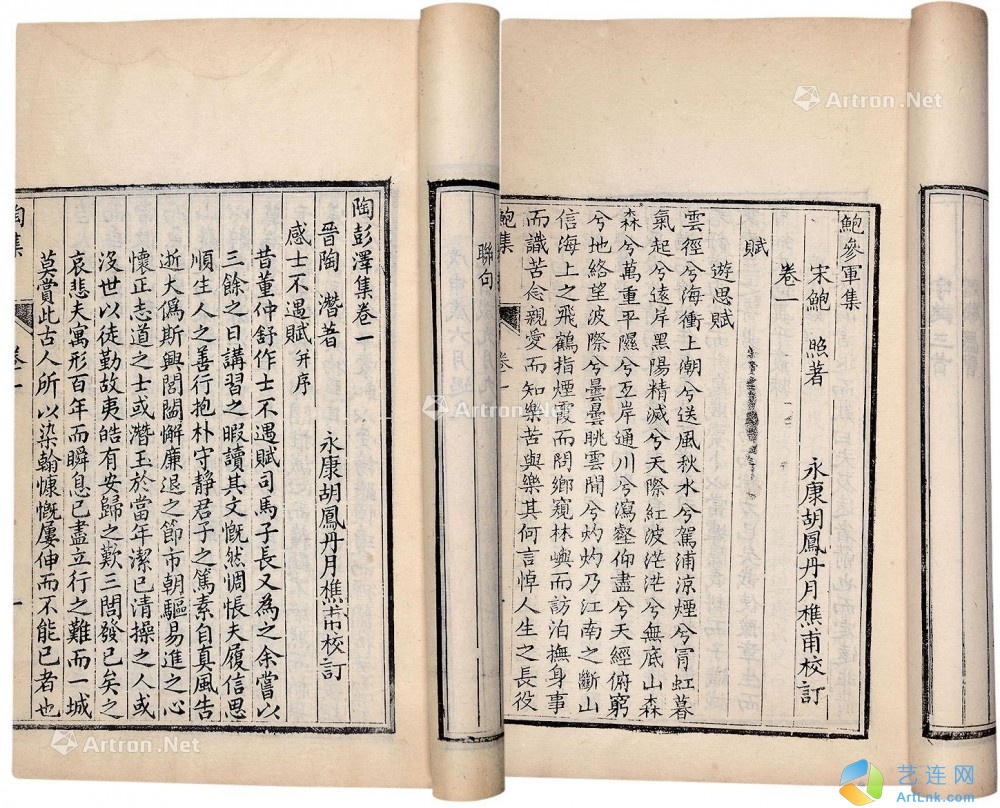 鮑參軍集
宋鮑　照著　永康胡鳳丹月樵甫校訂
卷一
賦
遊思賦
雲徑兮海衝上潮兮送風秋水兮駕浦涼煙兮冐虹暮
氣起兮遠岸黑陽精滅兮天際紅波茫茫兮無底山森
森兮萬重平隰兮亙岸通川兮瀉壑仰盡兮天經俯窮
兮地絡望波際兮曇曇眺雲間兮灼灼乃江南之斷山
信海上之飛鶴指煙霞而問鄉窺林嶼而訪泊撫身事
而識苦念親愛而知樂苦與樂其何言悼人生之長役
鮑集
卷一
聯句
陶彭澤集卷一
晉陶　潛著　永康胡鳳丹月樵甫校訂
感士不遇賦并序
昔董仲舒作士不遇賦司馬子長又為之余嘗以
三餘之日講習之暇讀其文慨然惆悵夫履信思
順生人之善行抱朴守静君子之篤素自真風告
逝大偽斯興閭閻懈廉退之節市朝驅易進之心
懷正志道之士或潛玉於當年潔已清操之人或
沒世以徒勤故夷皓有安歸之歎三閭發已矣之
哀悲夫寓形百年而瞬息已盡立行之難而一城
莫賞此古人所以染翰慷慨屢伸而不能已者也
陶集
卷一
一
Artron.Net
Artron.Net
Artron.Net
Artron.Net
艺连网
ArtLnk.com